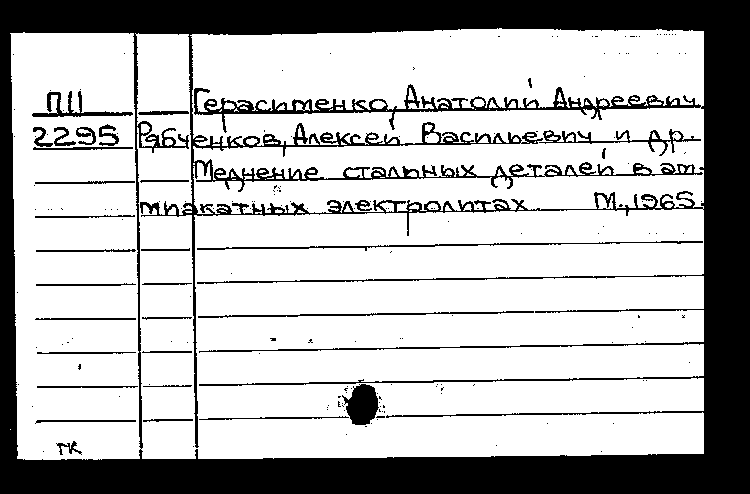 П11 Герасименко, Анатолий Андреевич
2295 Рябченков, Алексей Васильевич и др.
Меднение стальных деталей в эт-
миакатных электролитах М., 1965.
ПК